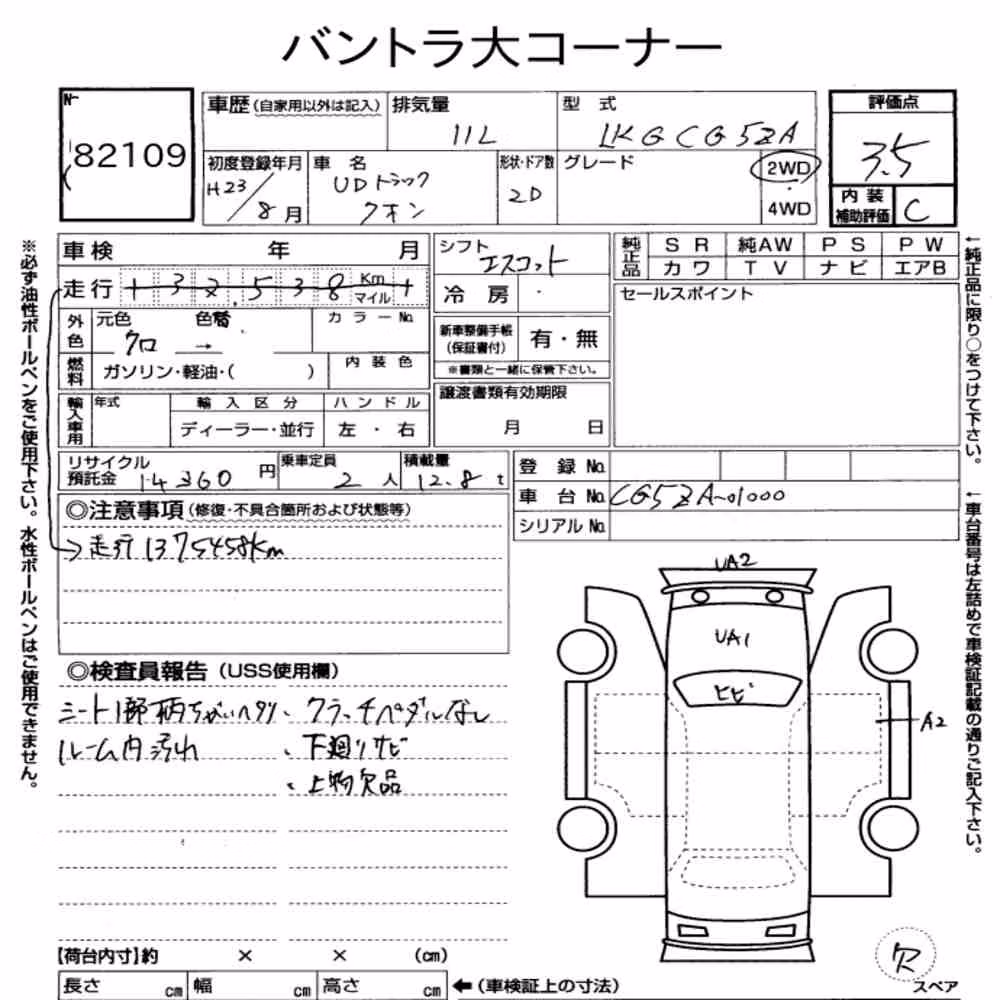 バントラ大コーナー
No.
82109
車歴(自家用以外は記入) 排気量 型式 評価点
11L LKG CG5ZA 3.5
初度登録年月 車名 形状・ドア数 グレード 2WD
H23/8月 UDトラック クオン 2D 4WD
内装補助評価 C
車検 年 月
シフト エスコット
純正品 SR 純AW PS PW
カワ TV ナビ エアB
走行 + 3 2,5 3 8 Km マイル +
冷房
セールスポイント
外色 元色 色替 カラーNo.
クロ →
新車整備手帳(保証書付) 有・無
※書類と一緒に保管下さい。
燃料 ガソリン・軽油・( ) 内装色
譲渡書類有効期限
月 日
輸入車用 年式 輸入区分 ハンドル
ディーラー・並行 左・右
リサイクル預託金 14360円 乗車定員 2人 積載量 12.8t
登録No.
車台No. CG5ZA-01000
シリアルNo.
◎注意事項(修復・不具合箇所および状態等)
→走行1375458Km
◎検査員報告(USS使用欄)
シート1部柄ちがいヘタリ、クラッチペダルなし
ルーム内汚れ 、下廻りサビ
、上物欠品
UA2
UA1
ヒビ
A2
【荷台内寸】約 × × (cm)
長さ cm 幅 cm 高さ cm ←(車検証上の寸法)
欠
スペア
※必ず油性ボールペンをご使用下さい。水性ボールペンはご使用できません。
←純正品に限り○をつけて下さい。
←車台番号は左詰めで車検証記載の通りご記入下さい。